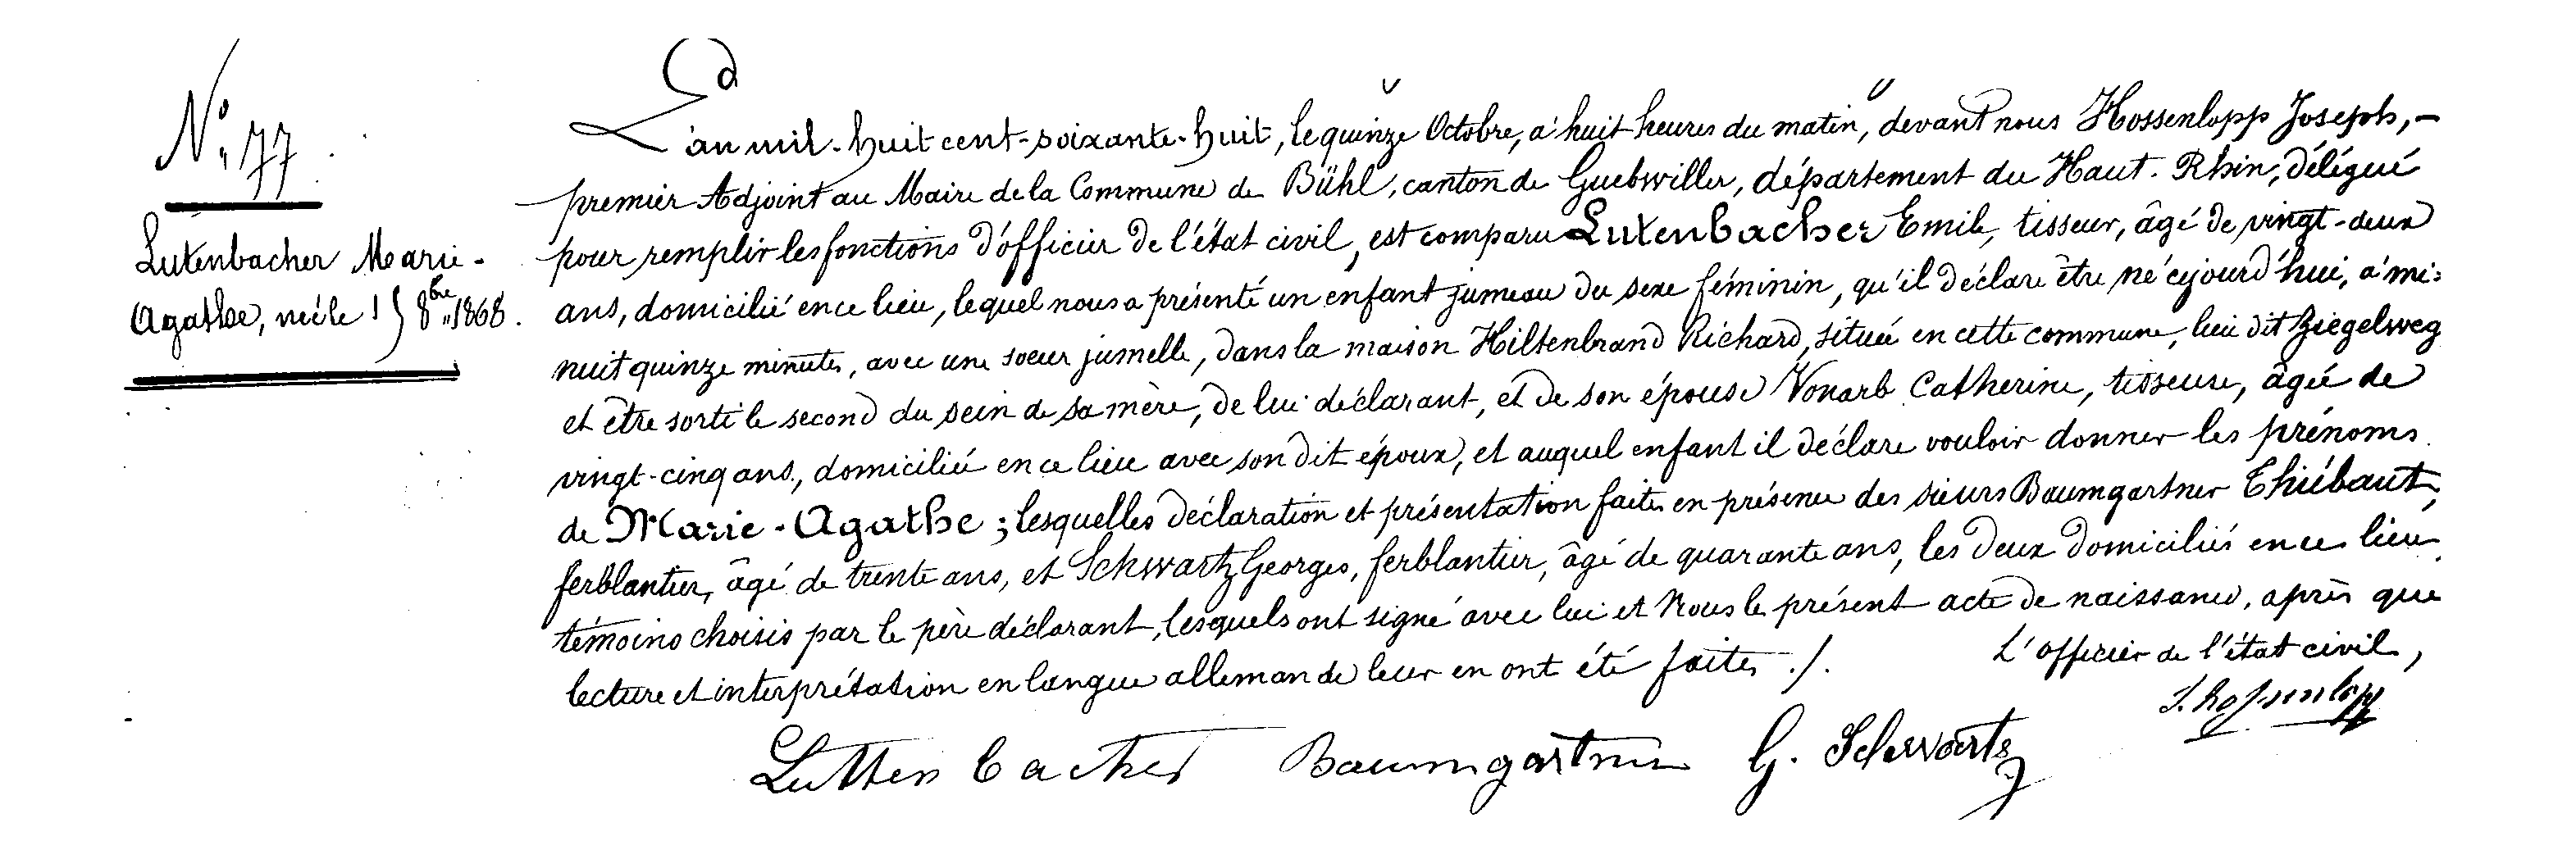 N° 77.
Lutenbacher Marie-
Agathe, née le 15 8bre 1868.
L'an mil-huit cent-soixante-huit, le quinze Octobre, à huit heures du matin, devant nous Hossenlopp Joseph,-
premier Adjoint au Maire de la Commune de Bühl, canton de Guebwiller, département du Haut-Rhin, délégué
pour remplir les fonctions d'officier de l'état civil, est comparu Lutenbacher Emile, tisseur, âgé de vingt-deux
ans, domicilié en ce lieu, lequel nous a présenté un enfant jumeau du sexe féminin, qu'il déclare être né cejourd'hui, à mi-
nuit quinze minutes, avec une soeur jumelle, dans la maison Hiltenbrand Richard, située en cette commune, lieu dit Ziegelweg
et être sorti le second du sein de sa mère, de lui déclarant, et de son épouse Vonarb Catherine, tisseuse, âgée de
vingt-cinq ans, domiciliée en ce lieu avec son dit époux, et auquel enfant il déclare vouloir donner les prénoms
de Marie-Agathe; lesquelles déclaration et présentation faites en présence des sieurs Baumgartner Thiébaut,
ferblantier, âgé de trente ans, et Schwartz Georges, ferblantier, âgé de quarante ans, les deux domiciliés en ce lieu
témoins choisis par le père déclarant, lesquels ont signé avec lui et Nous le présent acte de naissance, après que
lecture et interprétation en langue allemande leur en ont été faites ./.
L'officier de l'état civil,
J. hossenlopp
Luttenbacher Baumgartner G. Schwartz